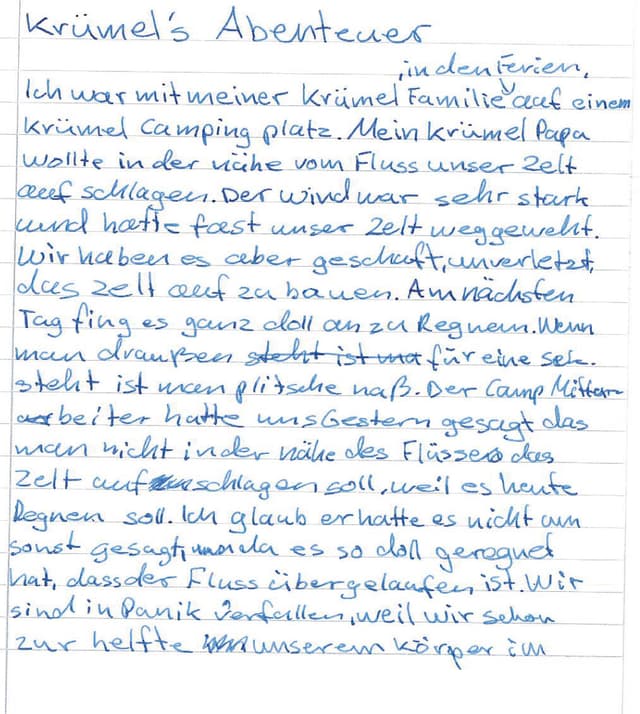 Krümel's Abenteuer
, in den Ferien,
Ich war mit meiner Krümel Familie auf einem
Krümel Camping platz. Mein Krümel Papa
wollte in der nähe vom Fluss unser Zelt
auf schlagen. Der Wind war sehr stark
und hatte fast unser Zelt weggeweht.
Wir haben es aber geschaft, unverletzt,
das Zelt auf zu bauen. Am nächsten
Tag fing es ganz doll an zu Regnen. Wenn
man draußen steht ist ma für eine sek.
steht ist man plitsche naß. Der Camp Mitar-
beiter hatte uns Gestern gesagt das
man nicht in der nähe des Flusses das
Zelt aufschlagen soll, weil es heute
Regnen soll. Ich glaub er hatte es nicht um
sonst gesagt, da es so doll geregnet
hat, dass der Fluss übergelaufen ist. Wir
sind in Panik Verfallen, weil wir schon
zur helfte unserem körper im